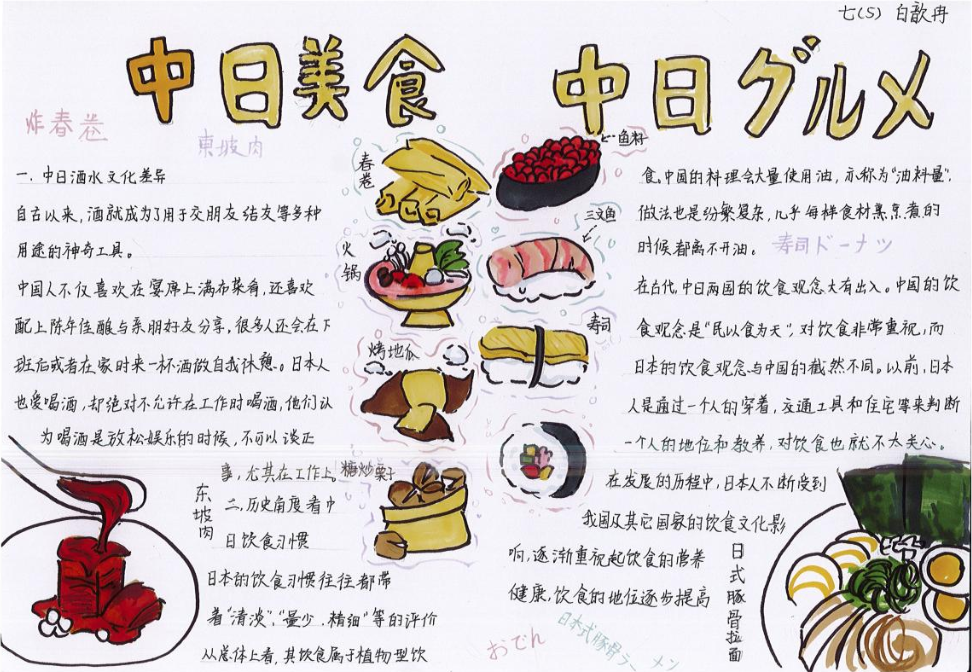 七(5) 白歆冉
中日美食
中日グルメ
炸春卷
東坡肉
一. 中日酒水文化差异
自古以来,酒就成为了用于交朋友结友等多种
用途的神奇工具。
中国人不仅喜欢在宴席上满布菜肴,还喜欢
配上陈年佳酿与亲朋好友分享,很多人还会在下
班后或者在家时来一杯酒做自我休憩。日本人
也爱喝酒,却绝对不允许在工作时喝酒,他们认
为喝酒是放松娱乐的时候,不可以谈正
事,尤其在工作上。
二,历史角度看中
日饮食习惯
日本的饮食习惯往往都带
着“清淡”、“量少、精细”等的评价
从总体上看,其饮食属于植物型饮
东坡肉
春卷
火锅
烤地瓜
糖炒栗子
鱼籽
三文鱼
寿司
食,中国的料理会大量使用油,亦称为“油料量”,
做法也是纷繁复杂,几乎每样食材蒸烹煮的
时候都离不开油。
寿司ドーナツ
在古代,中日两国的饮食观念大有出入。中国的饮
食观念是“民以食为天”,对饮食非常重视,而
日本的饮食观念与中国的截然不同。以前,日本
人是通过一个人的穿着,交通工具和住宅等来判断
一个人的地位和教养,对饮食也就不太关心。
在发展的历程中,日本人不断受到
我国及其它国家的饮食文化影
响,逐渐重视起饮食的营养
健康,饮食的地位逐步提高
日式豚骨拉面
おでん
日本式豚骨ラーメン